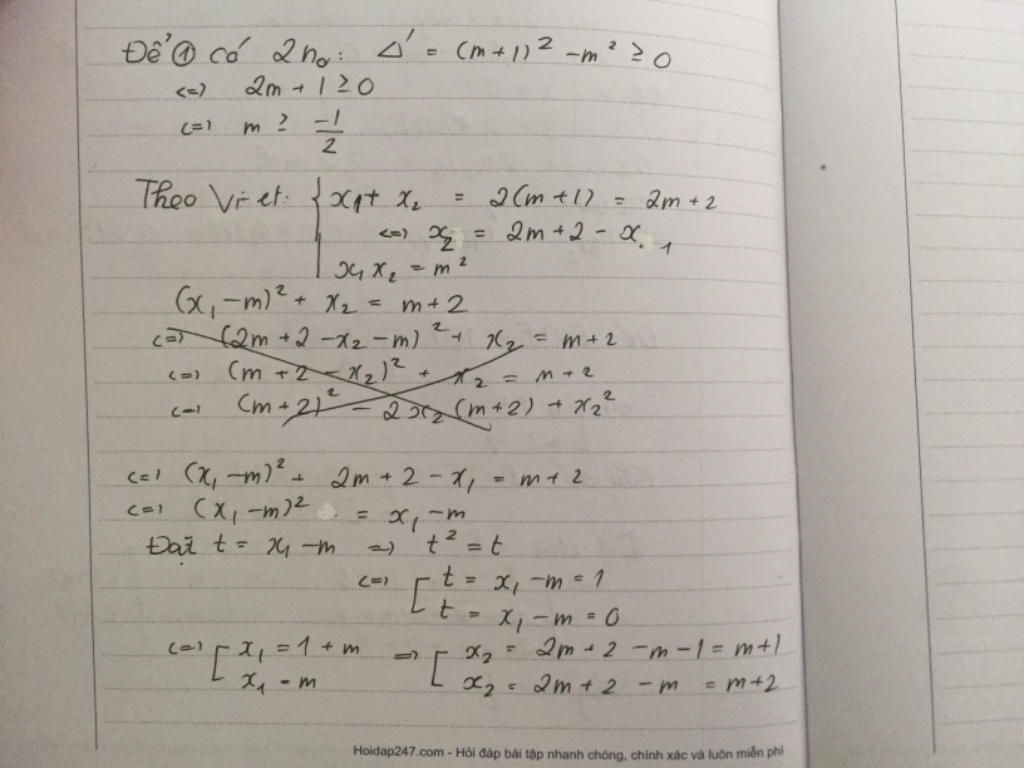 Để ① có 2 no: Δ' = (m+1)² - m² ≥ 0
<=> 2m + 1 ≥ 0
<=> m ≥ -1/2
Theo Vi-et: { x₁ + x₂ = 2(m+1) = 2m+2
<=> x₂ = 2m+2 - x₁
x₁x₂ = m²
(x₁ - m)² + x₂ = m+2
<=> (2m+2 - x₂ - m)² + x₂ = m+2
<=> (m+2 - x₂)² + x₂ = m+2
<=> (m+2)² - 2x₂(m+2) + x₂²
<=> (x₁ - m)² + 2m+2 - x₁ = m+2
<=> (x₁ - m)² = x₁ - m
Đặt t = x₁ - m => t² = t
<=> [ t = x₁ - m = 1
t = x₁ - m = 0
<=> [ x₁ = 1 + m => [ x₂ = 2m+2 - m - 1 = m+1
x₁ = m x₂ = 2m+2 - m = m+2
Hoidap247.com - Hỏi đáp bài tập nhanh chóng, chính xác và luôn miễn phí